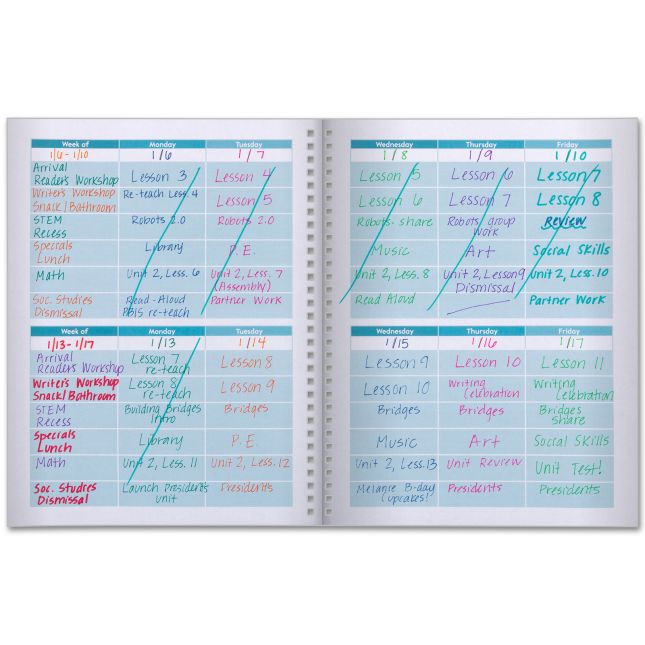 Week of Monday Tuesday
1/6 - 1/10 1/6 1/7
Arrival
Reader's Workshop Lesson 3 Lesson 4
Writer's Workshop Re-teach Less. 4
Snack/Bathroom Lesson 5
STEM Robots 2.0 Robots 2.0
Recess
Specials Library P.E.
Lunch
Math Unit 2, Less. 6 Unit 2, Less. 7
(Assembly)
Soc. Studies Read-Aloud Partner Work
Dismissal PBIS re-teach
Week of Monday Tuesday
1/13-1/17 1/13 1/14
Arrival Lesson 7 Lesson 8
Readers Workshop re-teach
Writer's Workshop Lesson 8 Lesson 9
Snack/Bathroom re-teach
STEM Building Bridges Bridges
Recess Intro
Specials Library P.E.
Lunch
Math Unit 2, Less. 11 Unit 2, Less. 12
Soc. Studies Launch Presidents Presidents
Dismissal unit
Wednesday Thursday Friday
1/8 1/9 1/10
Lesson 5 Lesson 6 Lesson 7
Lesson 6 Lesson 7 Lesson 8
Robots- share Robots group Review
work
Music Art Social Skills
Unit 2, Less. 8 Unit 2, Lesson 9 Unit 2, Less. 10
Dismissal
Read Aloud Partner Work
Wednesday Thursday Friday
1/15 1/16 1/17
Lesson 9 Lesson 10 Lesson 11
Lesson 10 Writing Writing
Celebration Celebration
Bridges Bridges Bridges
share
Music Art Social Skills
Unit 2, Less. 13 Unit Review Unit Test!
Melanie B-day Presidents Presidents
Cupcakes!